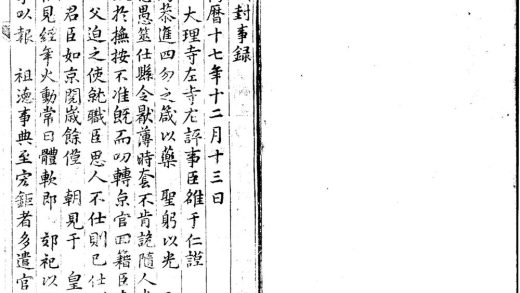 封事録
曆十七年十二月十三日
大理寺左寺左評事臣雒于仁謹
恭進四勿之箴以藥　聖躬以光
愚筮仕縣令厭薄時套不肯詭隨人
於撫按不准旣而叨轉京官囬籍臣
父迫之使就職臣思人不仕則已仕
君臣如京閱歲餘僅　朝見于　皇
見經年火動常曰體軟即　郊祀以
以報　祖德事典至宏鉅者多遣官